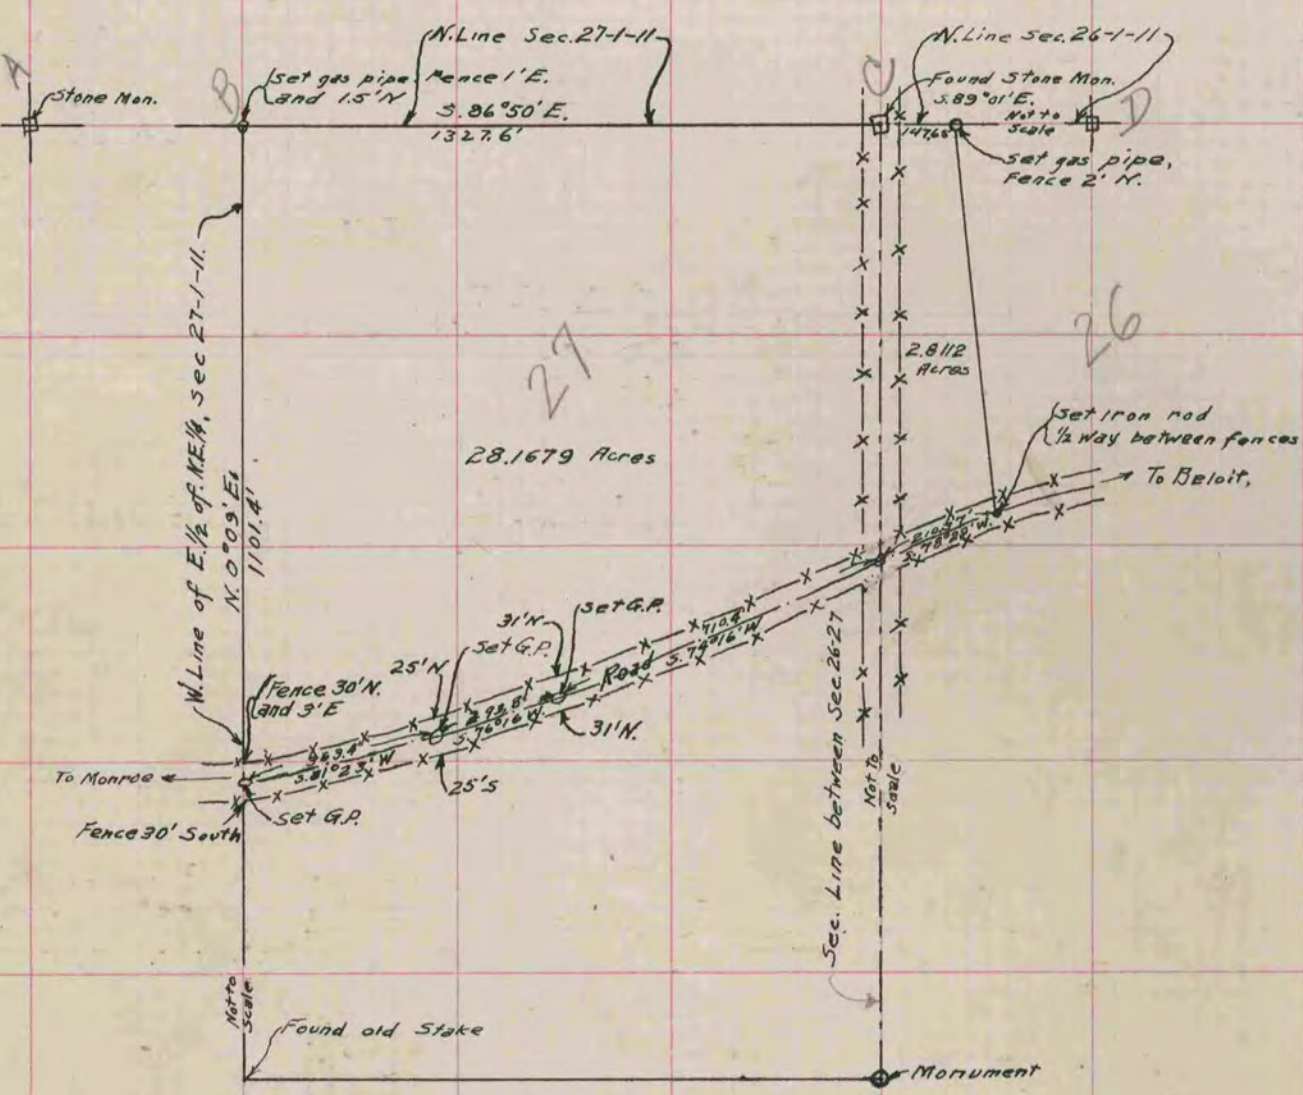 A
Stone Mon.
B
set gas pipe Fence 1' E.
and 1.5' N
N. Line Sec. 27-1-11
S. 86°50' E.
1327.6'
C
N. Line Sec. 26-1-11
Found Stone Mon.
S. 89°01' E.
147.68
Not to
Scale
D
set gas pipe,
Fence 2' N.
W. Line of E. 1/2 of N.E. 1/4, Sec 27-1-11.
N. 0°09' E.
1101.4'
27
26
28.1679 Acres
2.8112
Acres
set iron rod
1/2 way between fences
To Beloit,
S. 78°22' W.
set G.P.
31' N
set G.P.
25' N
710.4'
S. 74°16' W
Road
Fence 30' N.
and 3' E
293.8'
S. 76°16' W
31' N.
S. 81°23' W
25' S
To Monroe
set G.P.
Fence 30' South
Sec. Line between Sec. 26-27
Not To
Scale
Not to
Scale
Found old Stake
Monument